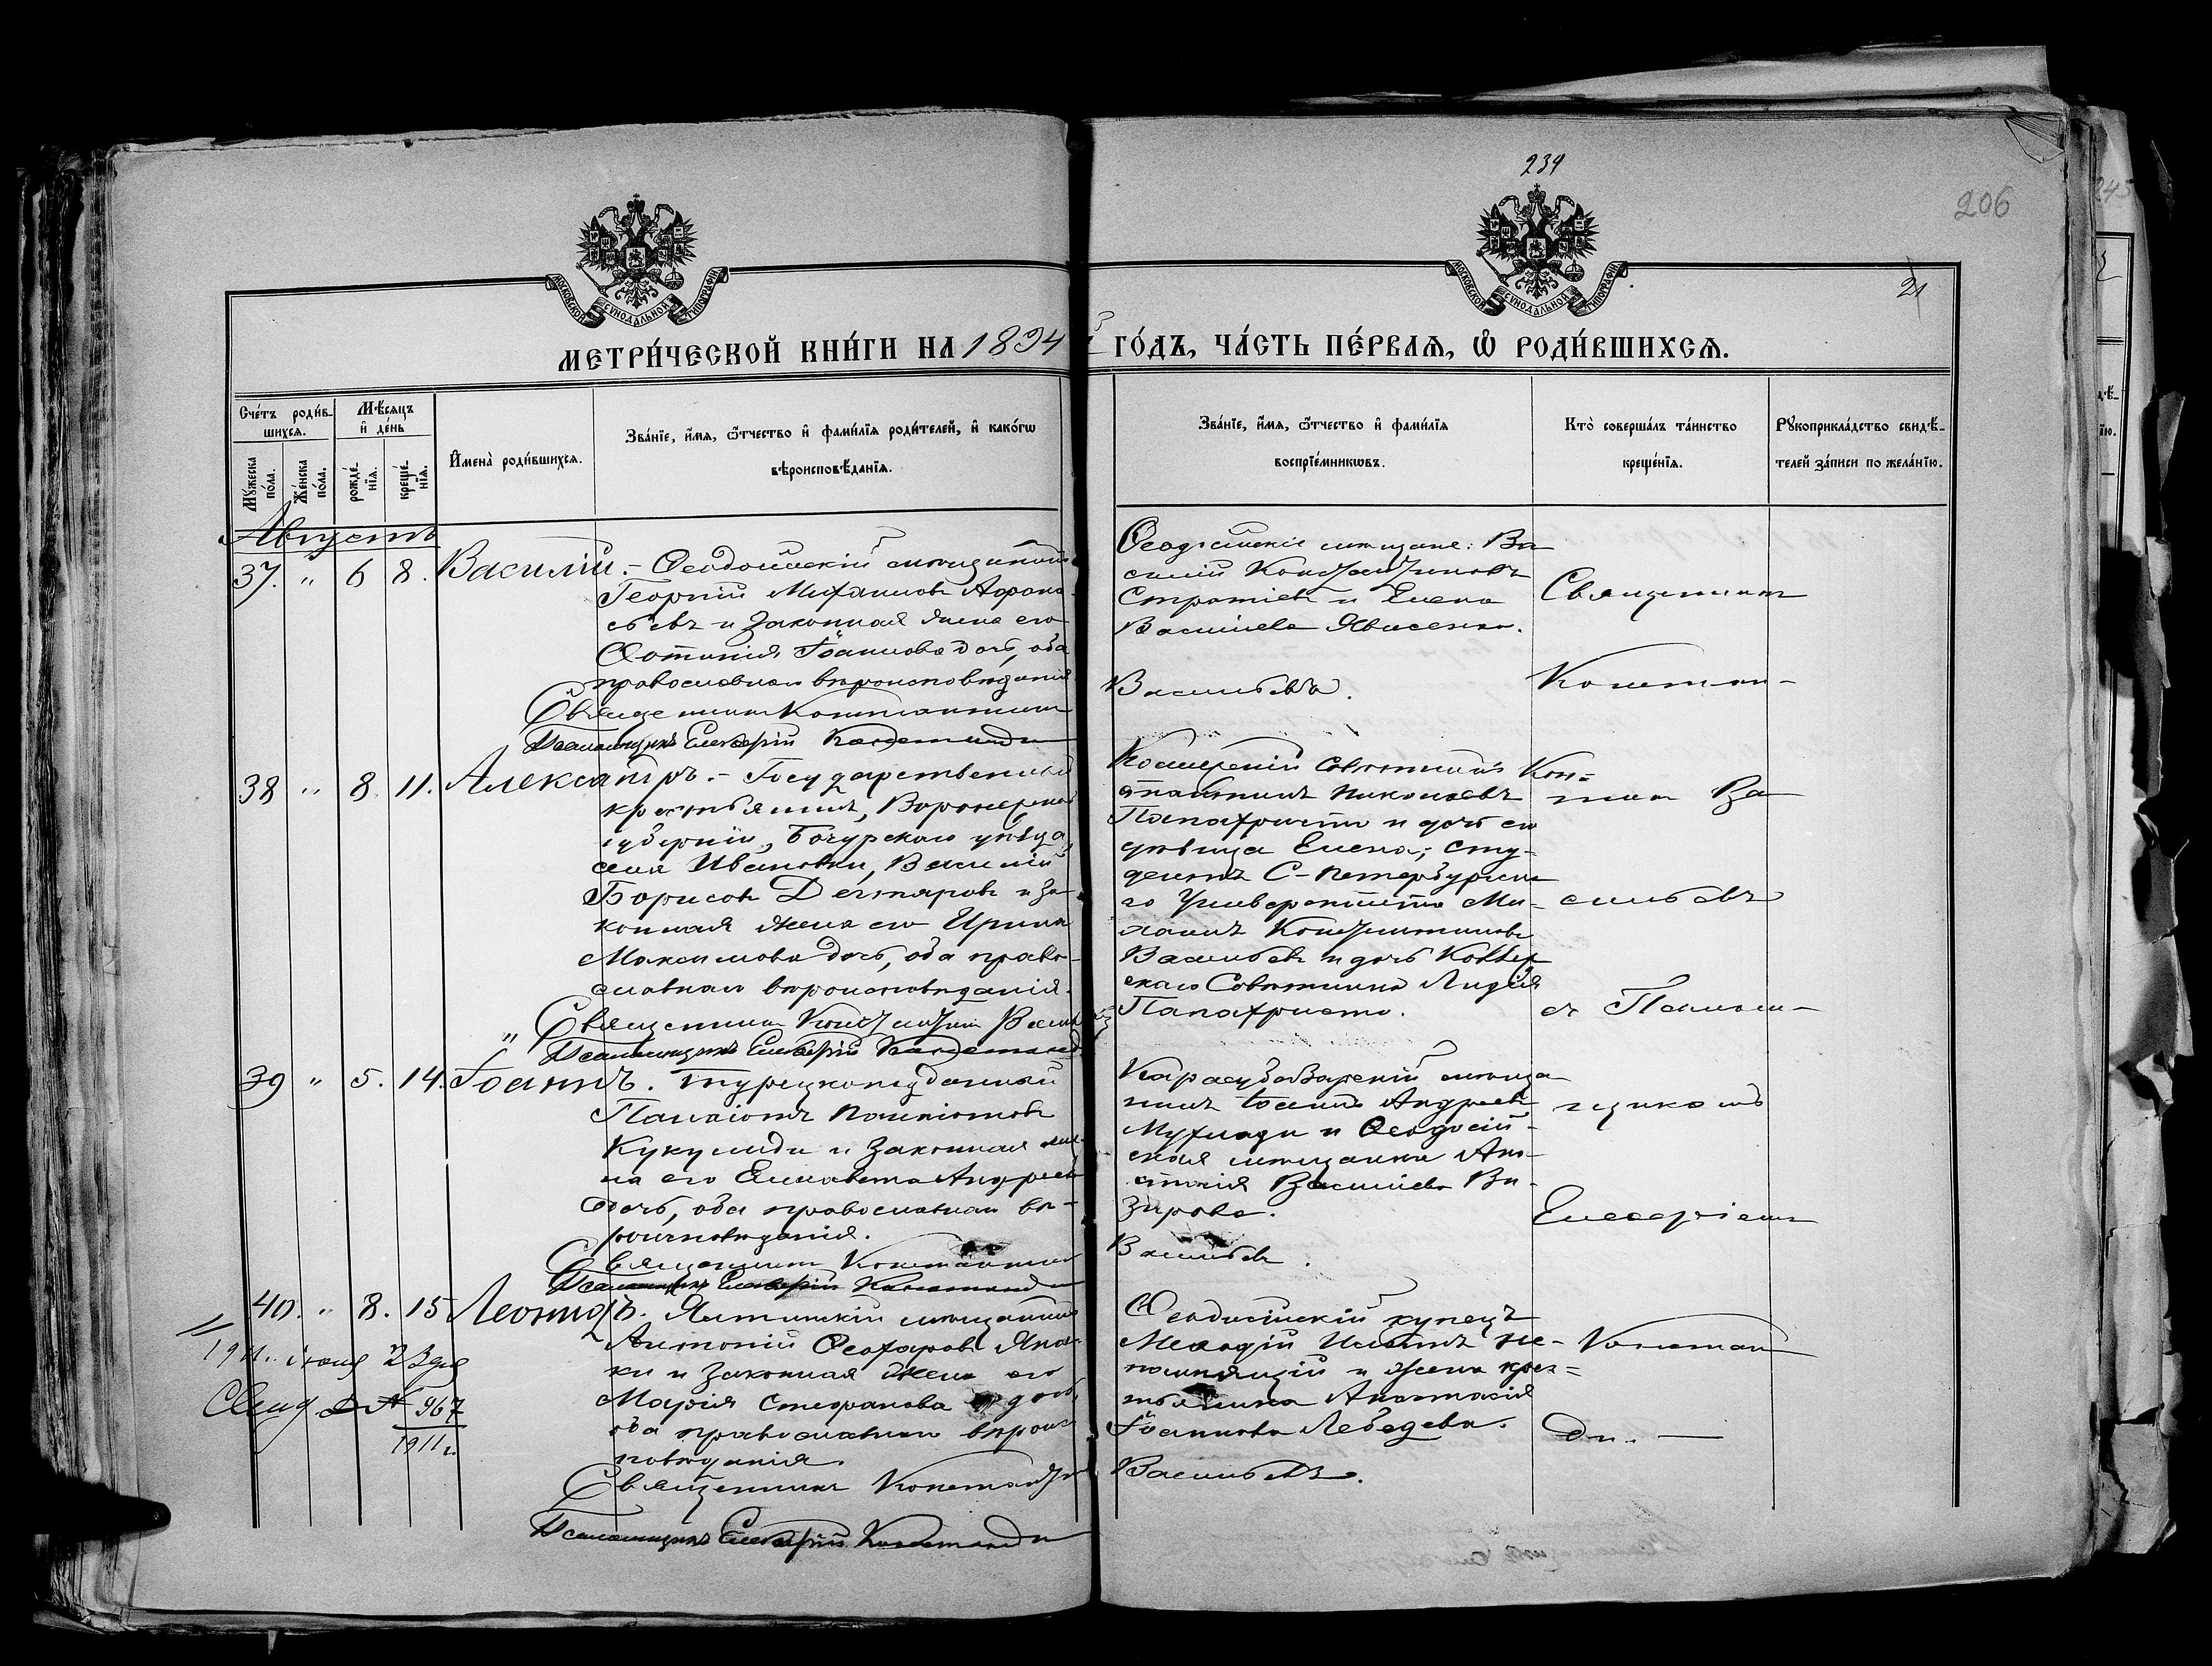 234
206
21
МОСКОВСКОЙ СѴНОДАЛЬНОЙ ТИПОГРАФІИ
МОСКОВСКОЙ СѴНОДАЛЬНОЙ ТИПОГРАФІИ
МЕТРИ́ЧЕСКОЙ КНИ́ГИ НА 1894 ГО́ДЪ, ЧА́СТЬ ПЕ́РВАѦ, Ѡ҆ РОДИ́ВШИХСѦ.
Сче́тъ роди́вшихсѧ.
Мꙋ́жеска по́ла.
Же́нска по́ла.
Мѣ́сѧцъ и҆ де́нь
рожде́нїѧ.
креще́нїѧ.
И҆мена̀ роди́вшихсѧ.
Зва́нїе, и҆́мѧ, ѻ҆́тчество и҆ фами́лїѧ роди́телей, и҆ како́гѡ
вѣроисповѣ́данїѧ.
Зва́нїе, и҆́мѧ, ѻ҆́тчество и҆ фами́лїѧ
воспрїе́мникѡвъ.
Кто̀ соверша́лъ та́инство
креще́нїѧ.
Рꙋкоприкла́дство свидѣ́-
телей за́писи по жела́нїю.
Августъ
37. " 6 8. Василій. – Ѳеодосійскій мѣщанинъ
Георгій Михаиловъ Аѳона-
сьевъ и законная жена его
Фотинія Іоаннова дочь, оба
православнаго вѣроисповѣданія
Священникъ Константинъ Васильевъ.
Псаломщикъ Елевѳерій Константинди
Ѳеодосійскіе мѣщане: Ва-
силій Константиновъ
Стратіевъ и Елена
Василіева
Священникъ
Констан-
38 " 8. 11. Александръ. – Государственный
крестьянинъ, Воронежской
губерніи, уѣзда,
села Ивановки, Василій
Борисовъ Дегтяровъ и за-
конная жена его Ирина
Максимова дочь, оба право-
славнаго вѣроисповѣданія.
Священникъ Константинъ
Псаломщикъ Елевѳерій
Совѣтникъ Кон-
стантинъ Николаевъ
Папахристо и дочь его
дѣвица Елена; сту-
дентъ С-Петербургска-
го Университета Ми-
хаилъ Константиновъ
Васильевъ и дочь Коллеж-
скаго Совѣтника Лидія
Папахристо.
тинъ Ва-
сильевъ
съ Псалом-
39 " 5. 14. Іоаннъ. Турецкоподданный
Панаіотъ Панаіотовъ
Кукулиди и законная же-
на его Елисавета Андреева
дочь, оба православнаго вѣ-
роисповѣданія.
Священникъ Константинъ Васильевъ.
Псаломщикъ Елевѳерій
Карасубазарскій мѣща-
нинъ Іоаннъ Андреевъ
и Ѳеодосій-
ская мѣщанка Ана-
стасія Василіева Ви-
зирова.
щикомъ
Елевѳеріемъ
40. " 8. 15 Леонидъ. Ялтинскій мѣщанинъ
Антоній Ѳеохаровъ
и законная жена его
Марія Стефанова дочь,
оба православнаго вѣроис-
повѣданія.
Священникъ Константинъ Васильевъ.
Псаломщикъ Елевѳерій
Ѳеодосійскій купецъ
Меѳодій Не-
помнящій и жена крес-
тьянина Анастасія
Іоаннова Лебедева.
Констан-
ди. —
1911. іюня 23 дня
Свид. № 967
1911 г.